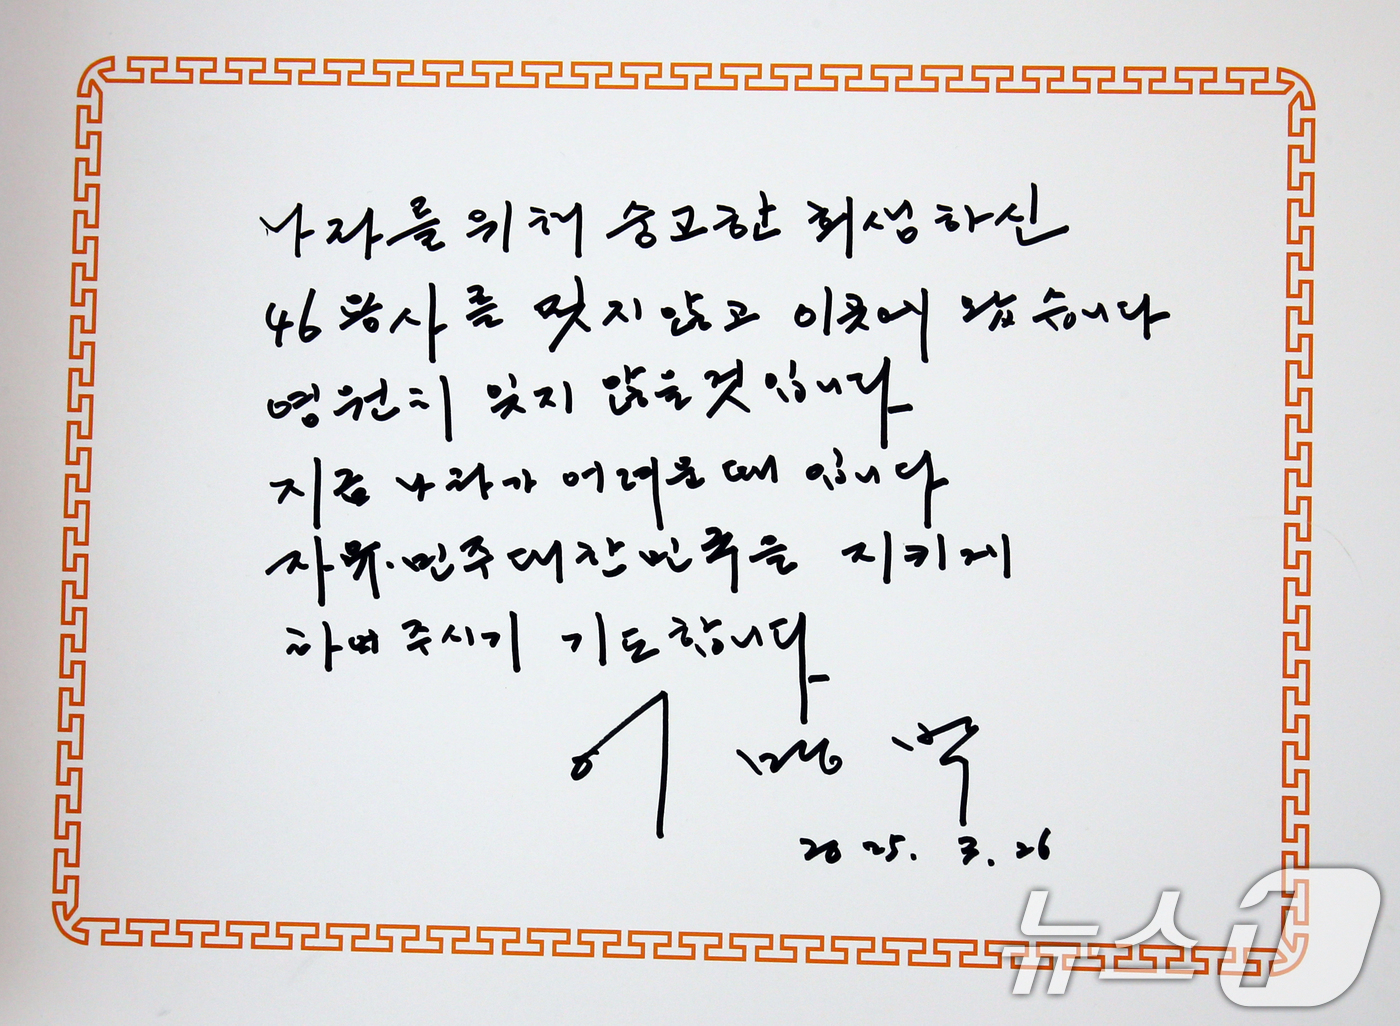 나라를 위해 숭고한 희생하신
46용사를 잊지 않고 이곳에 왔습니다
영원히 잊지 않을 것입니다
지금 나라가 어려운 때입니다
자유·민주 대한민국을 지키게
하여 주시기 기도합니다
이명박
2025. 3. 26
뉴스1